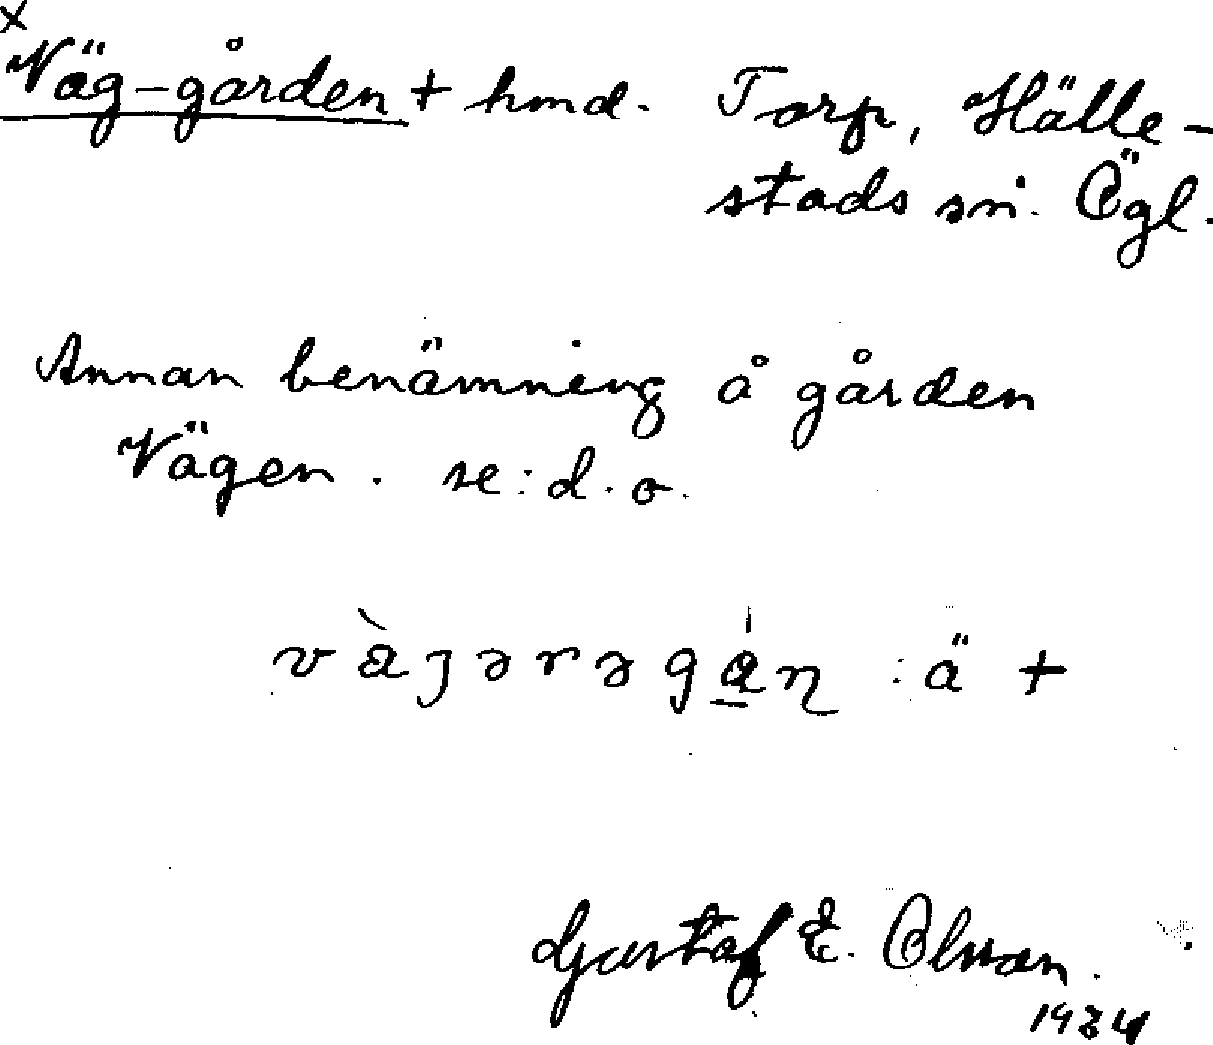 x
Väg-gården + hmd. Torp, Hälle-
stads sn. Ögl.
Annan benämning å gården
Vägen. se: d. o.
: ä +
Gustaf E. Olsson.
1934